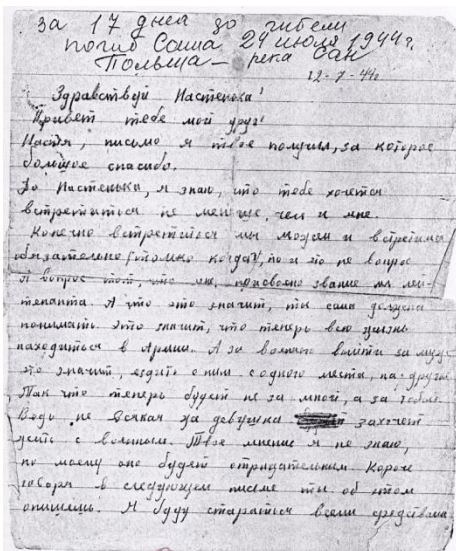 за 17 дней до гибели
погиб Саша 24 июля 1944г.
Польша — река Сан
12-7-44г
Здравствуй Настенька!
Привет тебе мой друг!
Настя, письмо я твое получил, за которое
большое спасибо.
Да Настенька, я знаю, что тебе хочется
встретиться не меньше, чем и мне.
Конечно встретиться мы можем и встретимся
обязательно (только когда?), но и это не вопрос
А вопрос тот, что мне, присвоено звание мл. лей-
тенанта А что это значит, ты сама должна
понимать. Это значит, что теперь всю жизнь
находиться в Армии. А за военного выйти замуж
это значит, ездить с ним с одного места, на другое
Так что теперь будет не за мной, а за тобой.
Ведь не всякая да девушка захочет
жить с военным. Твое мнение я не знаю,
по моему оно будет отрицательным. Короче
говоря в следующем письме ты об этом
опишешь. Я буду стараться всеми средствами